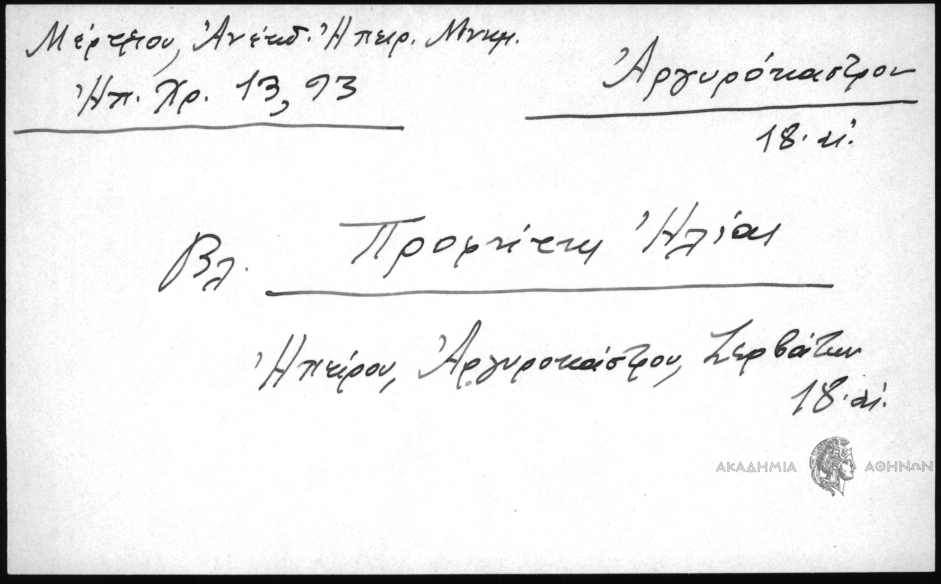 Μέρτζιου, Ἀνέκδ. Ἠπειρ. Μνημ.
Ἠπ. Χρ. 13, 93
Ἀργυρόκαστρον
18. αἰ.
Βλ. Προφήτης Ἠλίας
Ἠπείρου, Ἀργυροκάστρου, Σερβάτων
18. αἰ.
ΑΚΑΔΗΜΙΑ ΑΘΗΝΩΝ